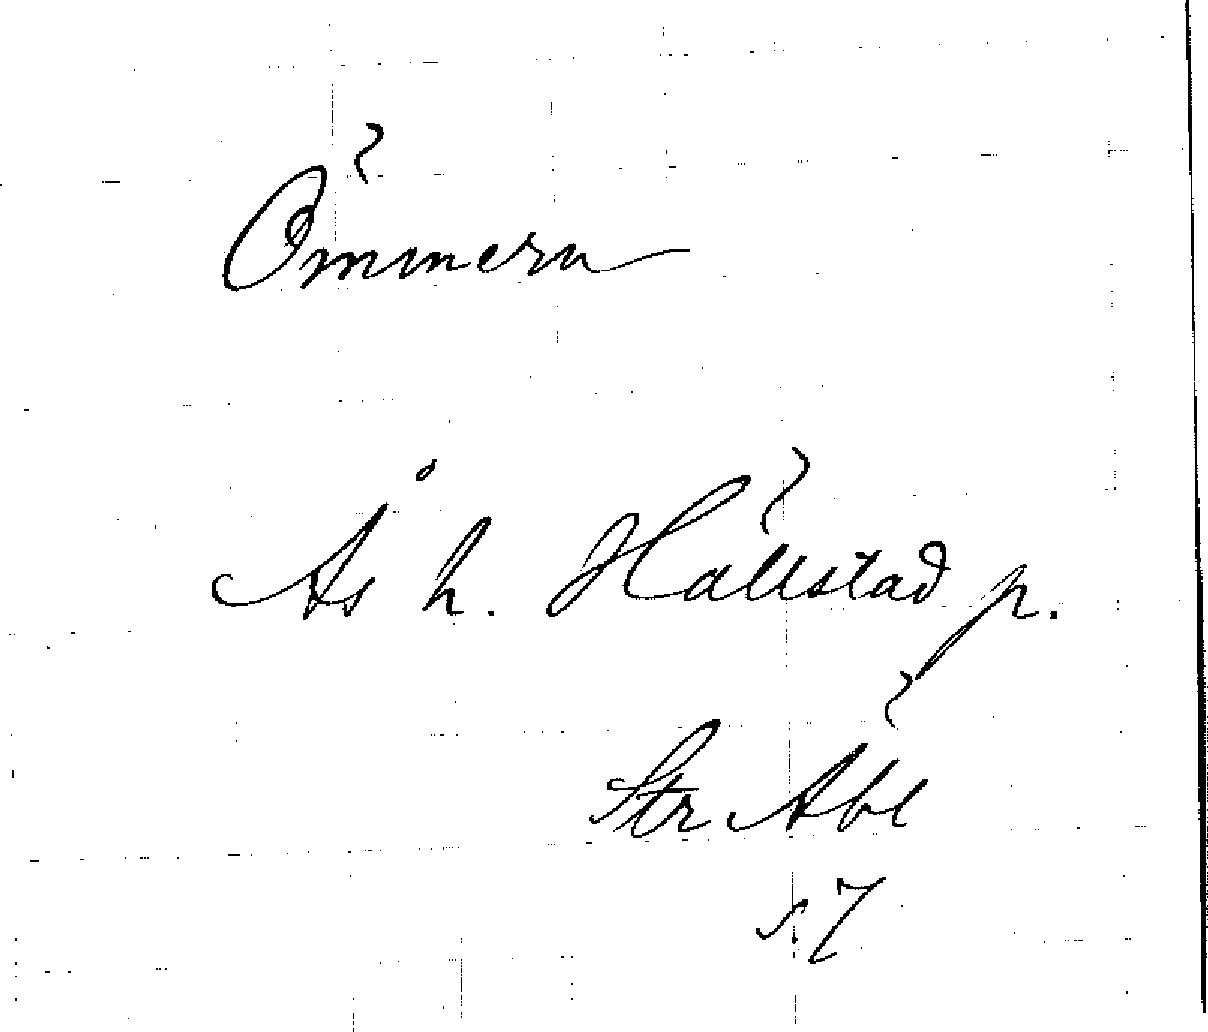 Ömmern
Ås h. Hällstad p.
Str Äbl
s. 7